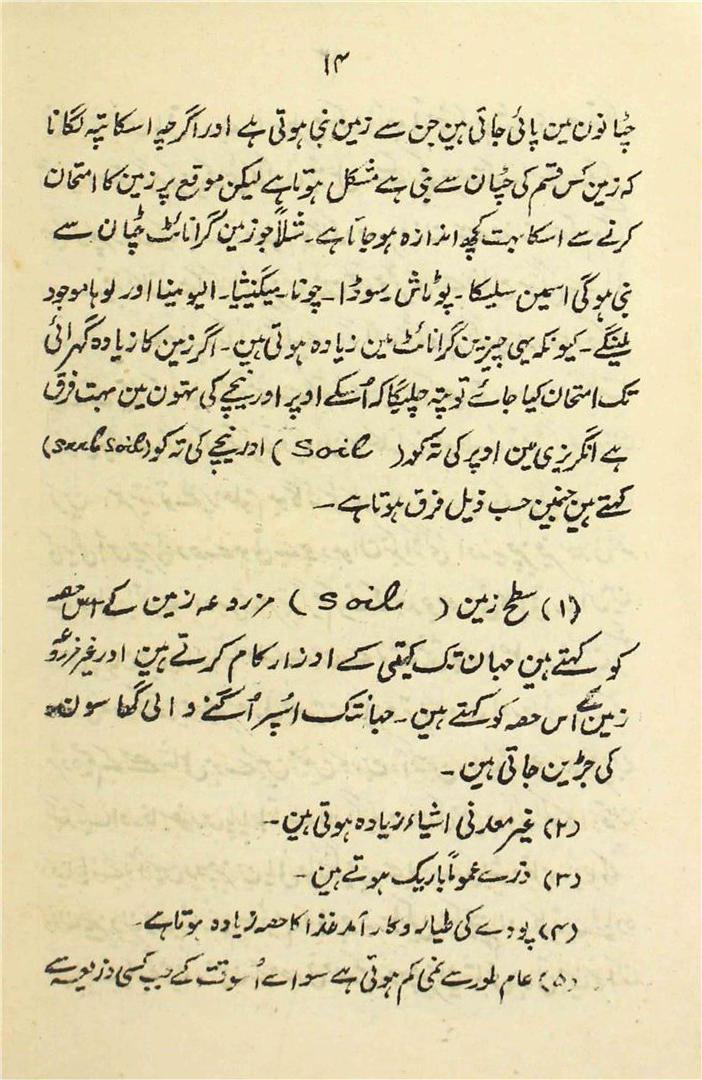 ۱۴
چٹانون مین پائی جاتی ہین جن سے زمین بنی ہوتی ہے اور اگرچہ اسکا پتہ لگانا
کہ زمین کس قسم کی چٹان سے بنی ہے مشکل ہوتا ہے لیکن موقع پر زمین کا امتحان
کرنے سے اسکا بہت کچھ اندازہ ہو جاتا ہے۔ مثلاً جو زمین گرانائٹ چٹان سے
بنی ہوگی اسمین سلیکا۔ پوٹاش۔ سوڈا۔ چونا۔ میگنیشیا۔ الیومینا اور لوہا موجود
ملینگے۔ کیونکہ یہی چیزین گرانائٹ مین زیادہ ہوتی ہین۔ اگر زمین کا زیادہ گہرائی
تک امتحان کیا جائے تو پتہ چلیگا کہ اُسکے اوپر اور نیچے کی تہون مین بہت فرق
ہے انگریزی مین اوپر کی تہ کو ( Soil ) اور نیچے کی تہ کو (Soil)
کہتے ہین جنمین حسب ذیل فرق ہوتا ہے ۔
(۱) سطح زمین ( Soil ) مزروعہ زمین کے اس حصہ
کو کہتے ہین جہان تک کھیتی کے اوزار کام کرتے ہین اور غیر مزروعہ
زمین کے اس حصہ کو کہتے ہین۔ جہانتک اسپر اُگنے والی گھاسون
کی جڑین جاتی ہین ۔
(۲) غیر معدنی اشیاء زیادہ ہوتی ہین۔
(۳) ذرے عموماً باریک ہوتے ہین ۔
(۴) پودے کی طیار و کار آمد غذا کا حصہ زیادہ ہوتا ہے۔
(۵) عام طور سے نمی کم ہوتی ہے سوائے اُسوقت کے جب کسی ذریعہ سے